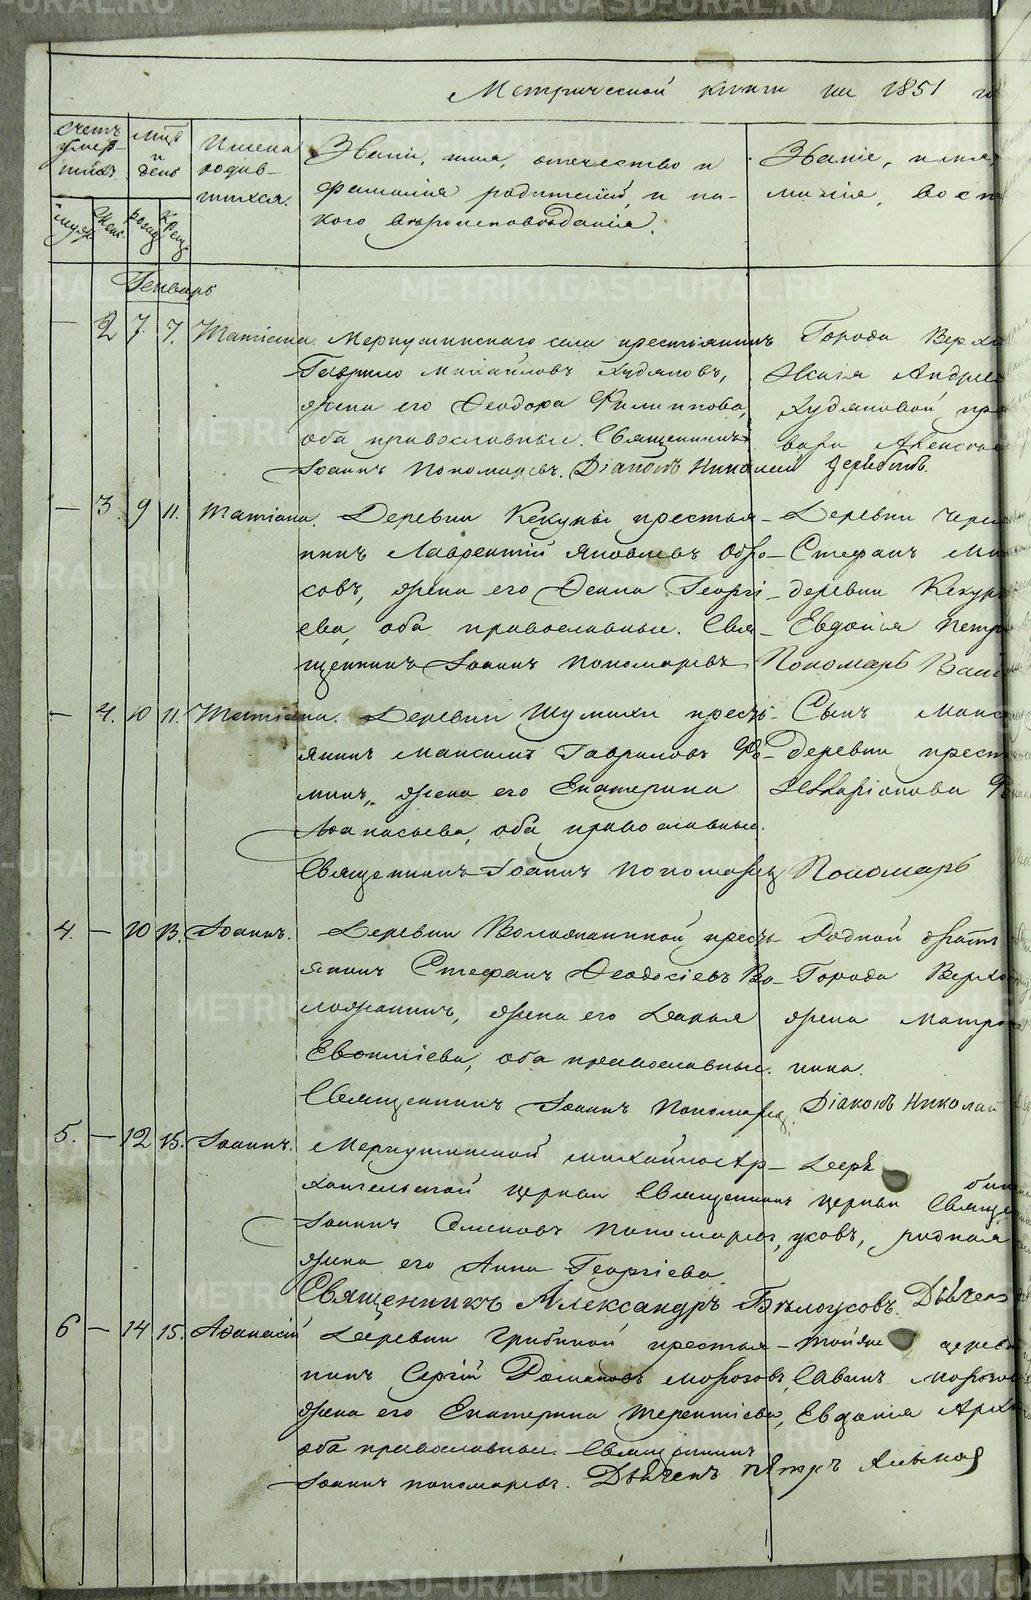 Метрической книги на 1851 го
Счетъ умершихъ.
мужс.
Женс.
Мцъ и день
рожд.
Крещ.
Имена родив-
шихся.
Званіе, имя, отечество и
фамилія родителей, и ка-
кого вѣроисповѣданія.
Званіе, имя,
милія, вост
Генварь
— 2 7. 7. Татіана. Меркушинскаго села крестьянинъ
Гаврило Михайловъ Худяковъ,
жена его Ѳеодора Филиппова,
оба православные. Священникъ
Іоаннъ Пономаревъ. Діаконъ Николай
Города Верхо
Андрее
Худяковой
— 3. 9 11. Татіана. Деревни Кекуры крестья-
нинъ Лаврентій Яковлевъ
совъ, жена его Георгі-
ева, оба православные. Свя-
щенникъ Іоаннъ Пономаревъ
Деревни
Стефанъ
деревни Кекур
Евдокія Петр
Пономарь
— 4. 10 11. Татіана. Деревни Шумихи кресть-
янинъ Максимъ Гавриловъ Фо-
минъ, жена его Екатерина
Аѳанасьева, оба православные.
Священникъ Іоаннъ Пономарев
Сынъ Макс
деревни крест
Пономарь
4. — 10 13. Іоаннъ. Деревни Воложаниной кресть-
янинъ Стефанъ Ѳеодосіевъ Во-
ложанинъ, жена его Дарья
Евѳиміева, оба православные.
Священникъ Іоаннъ Пономарев.
Родной братъ
Города Верхо
жена Матро
нина.
Діаконъ Николай
5. — 12 15. Іоаннъ. Меркушинской Михайлоар-
хангельской церкви Священникъ
Іоаннъ Симеоновъ Пономаревъ,
жена его Анна Георгіева.
Священникъ Александръ Бѣлоусовъ. Дьячекъ
церкви Священ
усовъ, родная
6 — 14 15. Аѳанасій Деревни Грибиной крестья-
нинъ Сергій Романовъ Морозовъ,
жена его Екатерина Терентіева,
оба православные. Священникъ
Іоаннъ Пономаревъ. Дьячекъ Петръ
тойже деревн
Саввинъ Морозов
Евдокія Арх
METRIKI.GASO-URAL.RU